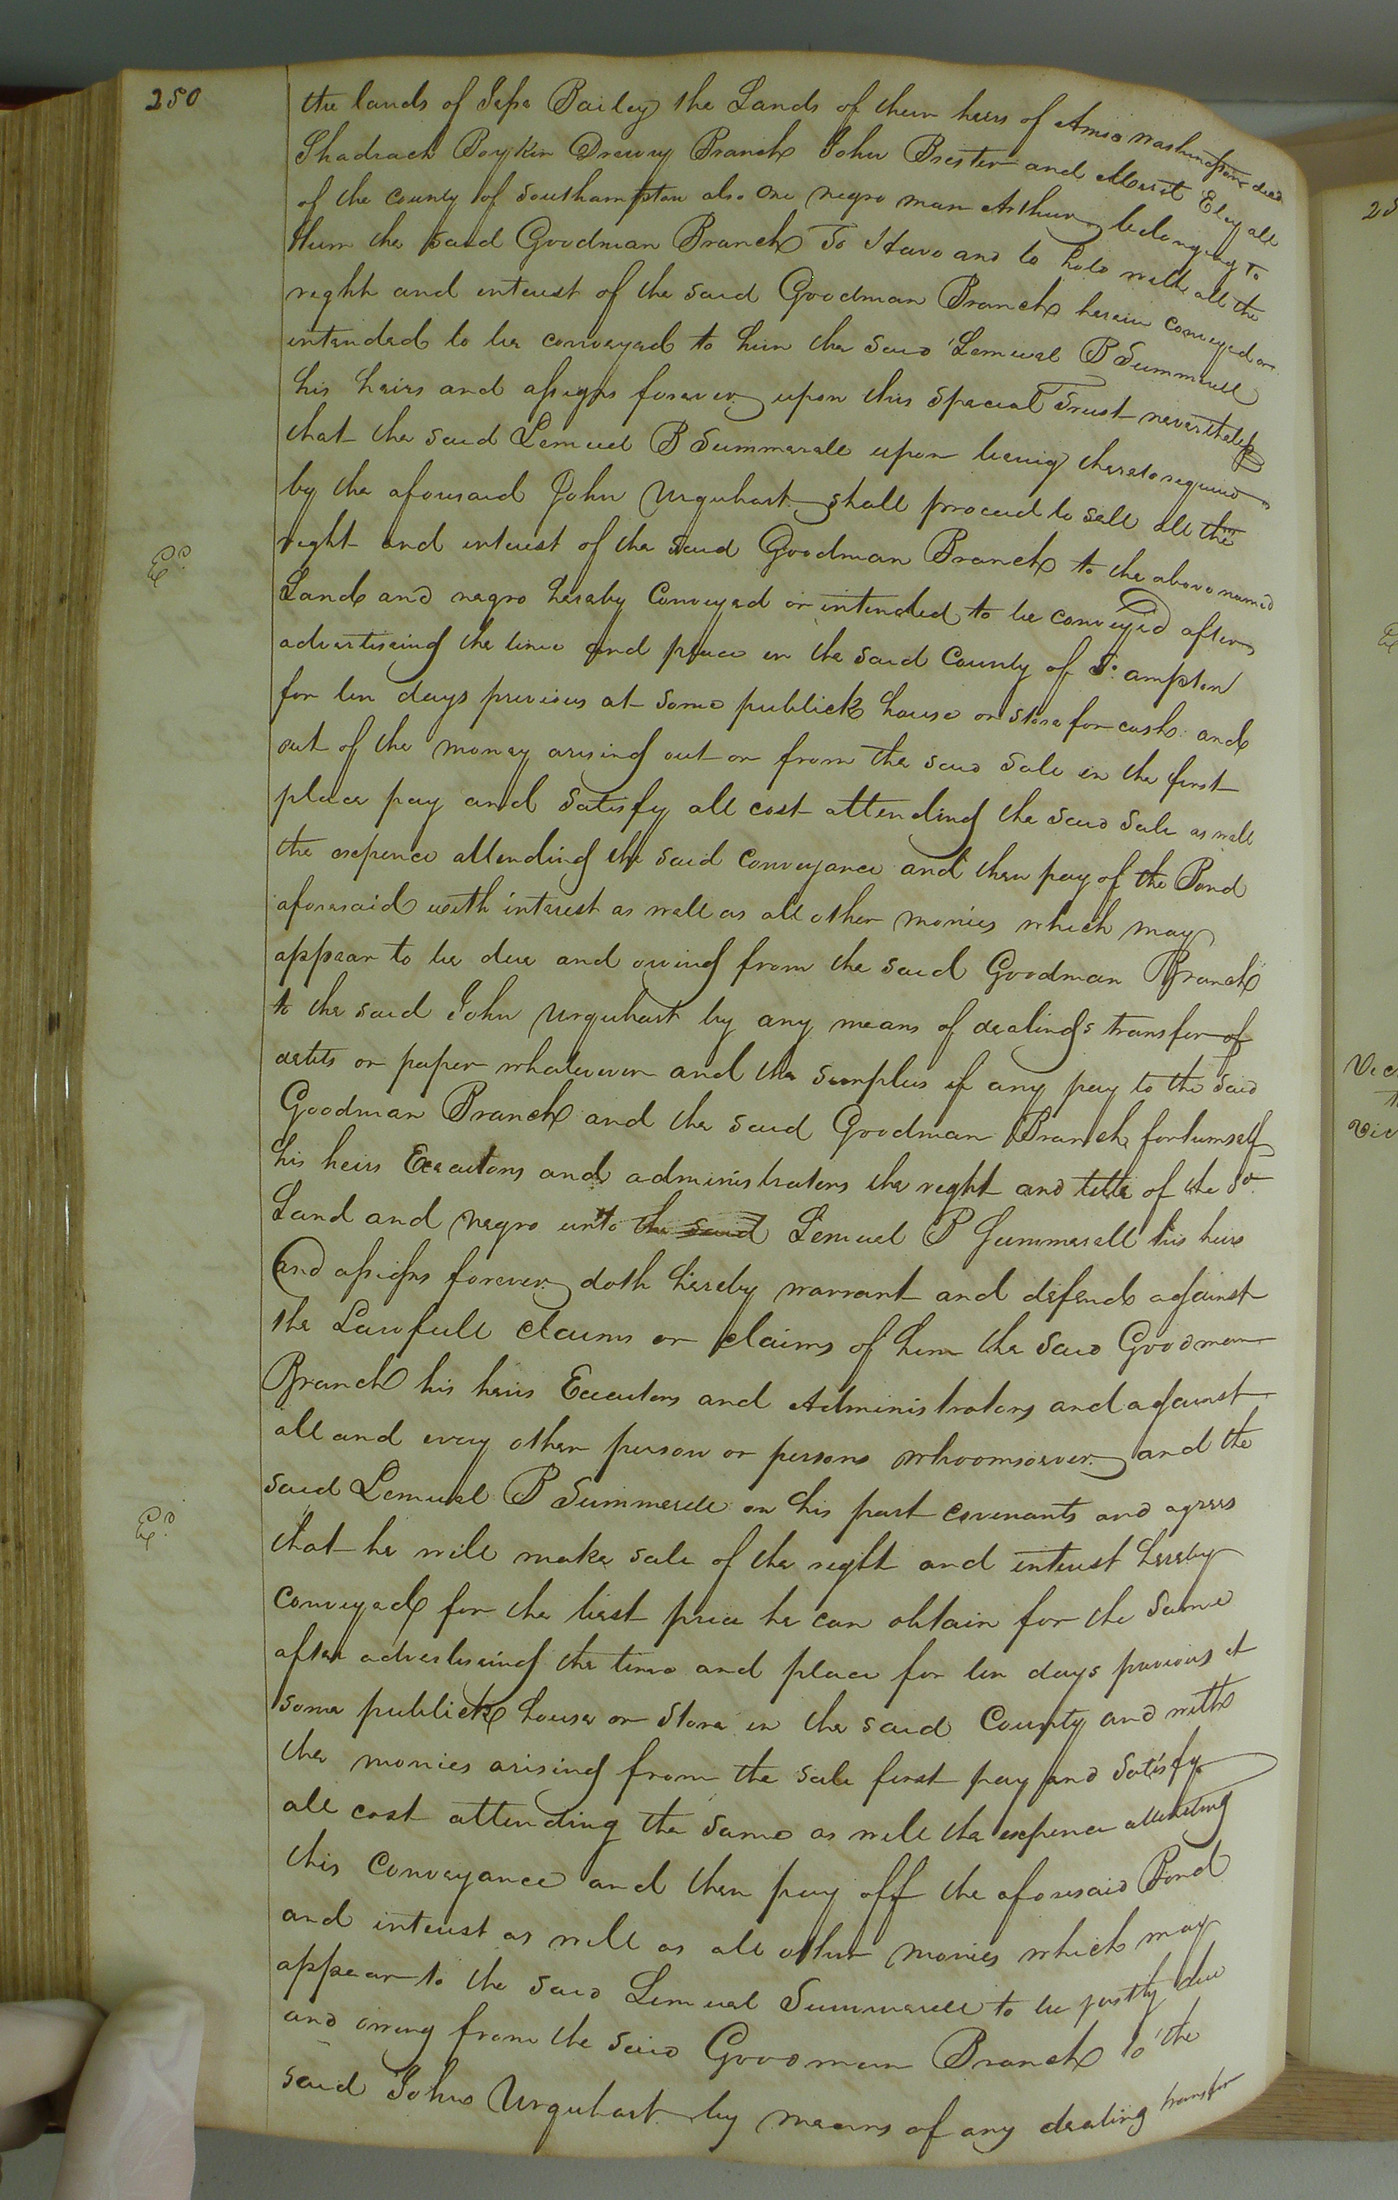 250
the lands of Jesse Bailey the Lands of them heirs of Amos Washington decd
Shadrach Boykin Drewry Branch John Brister and Merrit Eley all
of the county of Southampton also one negro man Arthur belonging to
Hum the said Goodman Branch To Have and to hold with all the
right and interest of the said Goodman Branch herein conveyed or
intended to be conveyed to him the said Lemuel P Summerell
his heirs and assigns forever upon this Special Trust nevertheless
that the said Lemuel P Summerell upon being thereto required
by the aforesaid John Urquhart shall proceed to sell all the
right and interest of the said Goodman Branch to the above named
Land and negro hereby Conveyed or intended to be conveyed after
advertiseing the time and place in the said County of So. ampton
for ten days previous at some publick house or store for cash and
out of the money arising out or from the said Sale in the first
place pay and Satisfy all cost attending the said Sale as well
the expence attending the said conveyance and then pay of the Bond
aforesaid with interest as well as all other monies which may
appear to be due and owing from the said Goodman Branch
to the said John Urquhart by any means of dealings transfer of
debts or paper whatever and the Surplus if any pay to the said
Goodman Branch and the said Goodman Branch for himself
his heirs Executors and administrators the right and title of the sd.
Land and Negro unto the said Lemuel P Summerell his heirs
and assigns forever doth hereby warrant and defend against
the Lawfull claims or claims of him the said Goodman
Branch his heirs Executors and Administrators and against
all and every other person or persons whoomsoever and the
said Lemuel P Summerell on his part covenants and agrees
that he will make sale of the right and interest hereby
conveyed for the best price he can obtain for the same
after advertiseing the time and place for ten days previous at
some publick house or store in the said County and with
the monies arising from the sale first pay and Satisfy
all cost attending the same as well the expence attending
this Conveyance and then pay off the aforesaid Bond
and interest as well as all other monies which may
appear to the said Lemuel Summerell to be justly due
and owing from the said Goodman Branch to the
said John Urquhart by means of any dealing transfer